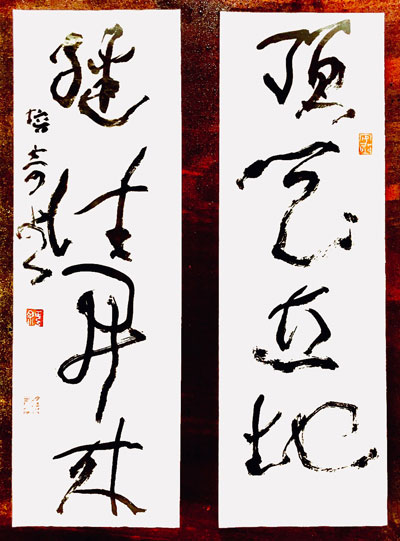 頂天立地
繼往開來